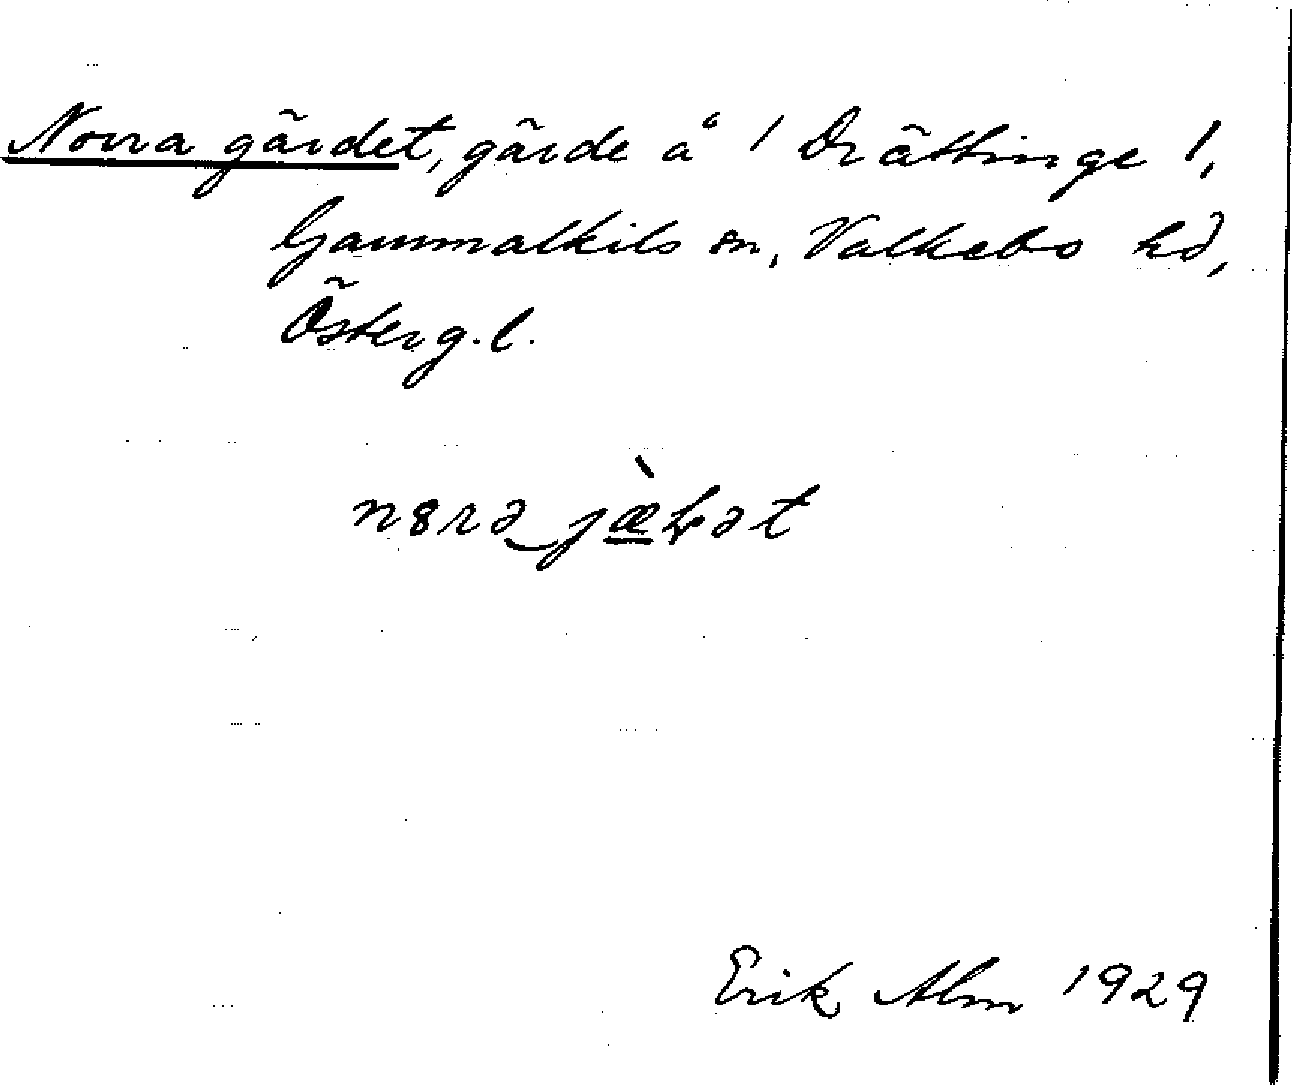 Norra gärdet, gärde å 1 Drättinge 1,
Gammalkils sn, Valkebo hd,
Österg.l.
Erik Alm 1929